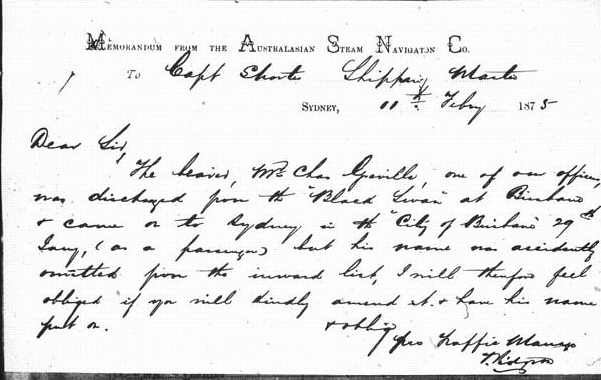 MEMORANDUM FROM THE AUSTRALASIAN STEAM NAVIGATON CO.
TO Capt Shorte Shipping Master
SYDNEY, 11th Feby 1875
Dear Sir,
The bearer, Mr Chas Greville, one of our officers,
was discharged from the "Black Swan" at Brisbane
& came on to Sydney in the "City of Brisbane" 29th
Jany, (as a passenger) but his name was accidently
omitted from the inward list, I will therefore feel
obliged if you will kindly amend it & have his name
put on.
& oblige
pro Traffic Manager